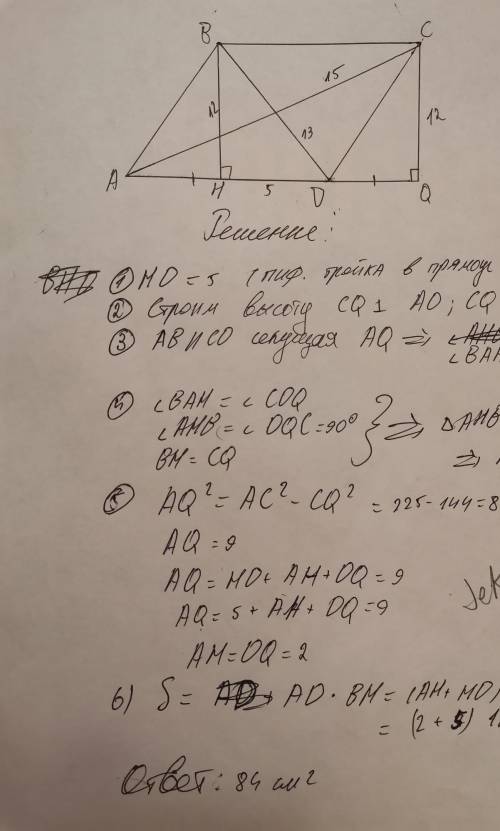 B C
15
12 13 12
A H 5 D Q
Решение:
① HD = 5 (пиф. тройка в прямоуг
② Строим высоту CQ ⊥ AD; CQ
③ AB || CD секущая AQ ⇒
∠BAH
④ ∠BAH = ∠CDQ
∠AHB = ∠DQC = 90°
BH = CQ
⇒ △AHB
⇒
⑤ AQ² = AC² - CQ² = 225 - 144 = 8
AQ = 9
AQ = HD + AH + DQ = 9
AQ = 5 + AH + DQ = 9
AH = DQ = 2
6) S = AD · BH = (AH + HD)
= (2 + 5) 1
Ответ: 84 см²